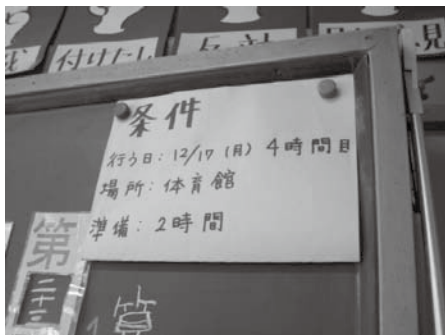 付けたし
反対
見
条件
行う日：12/17（月）4時間目
場所：体育館
準備：2時間
第
二十三
算